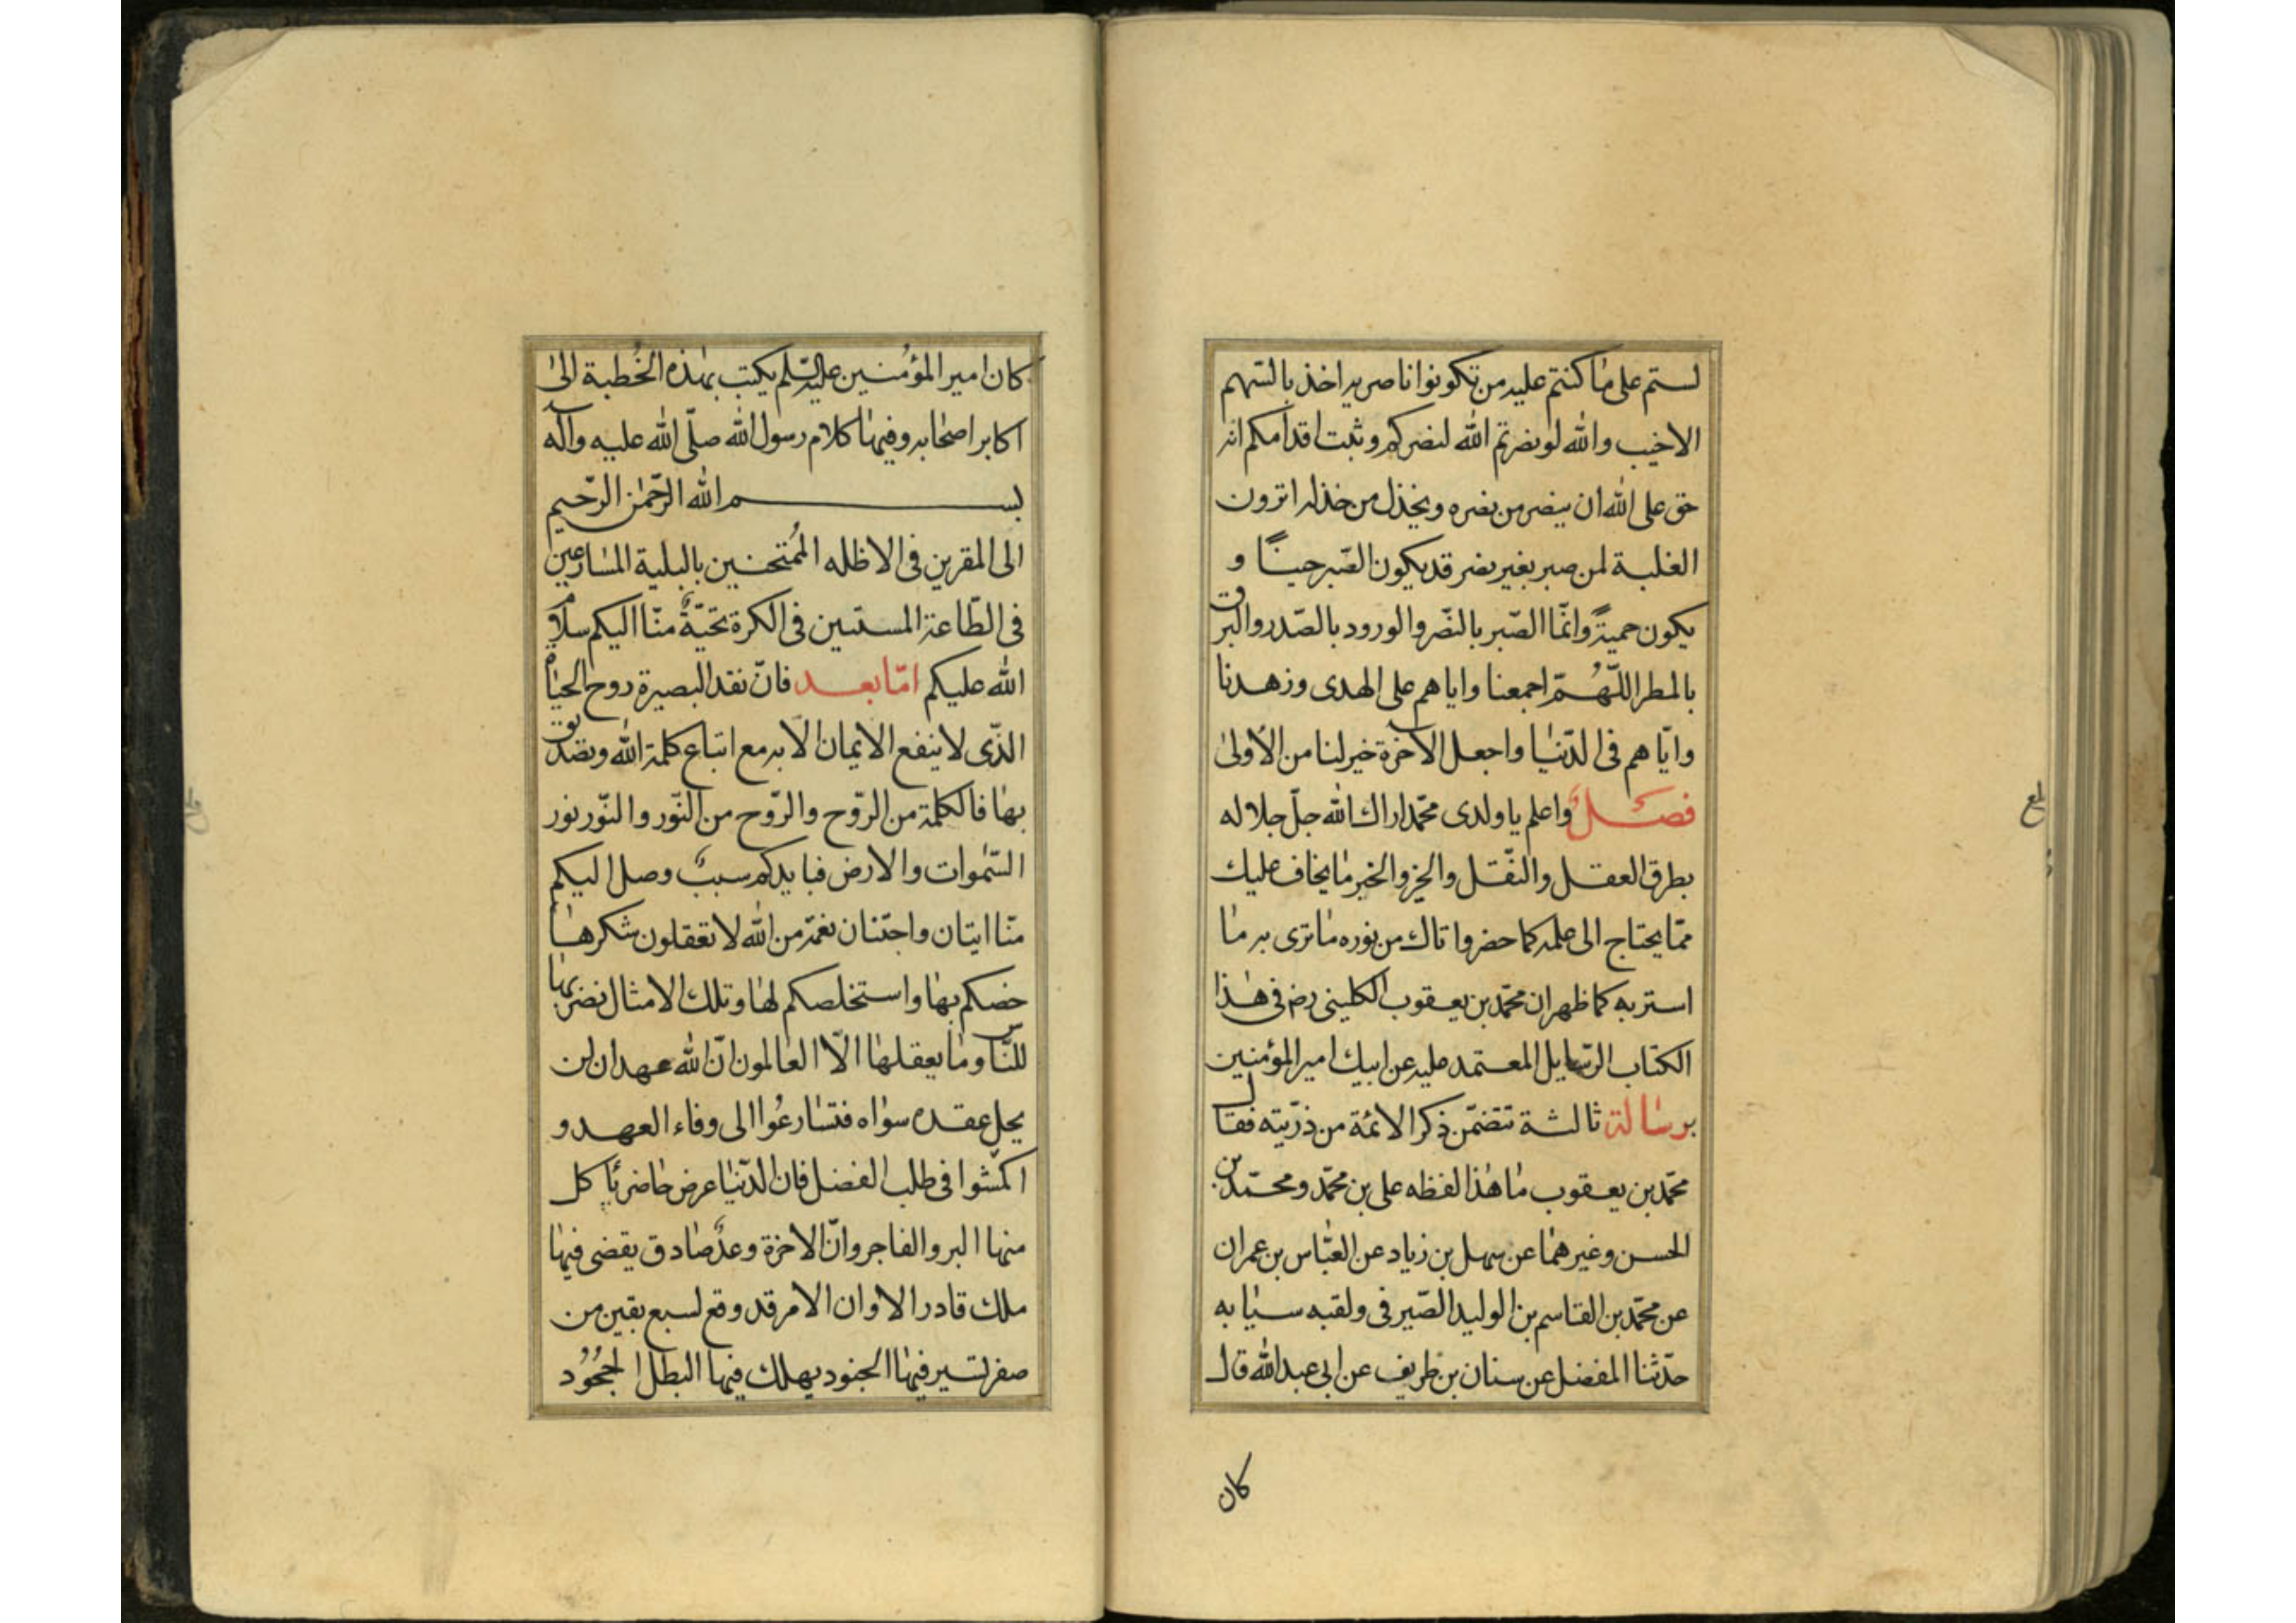 لستم على ما كنتم عليه من تكونوا ناصريه اخذ بالسهم
الاخيب والله لو نصرتم الله لنصركم وثبت اقدامكم انه
حق على الله ان ينصر من نصره ويخذل من خذله اترون
الغلبة لمن صبر بغير نصر قد يكون الصّبر جبنًا و
يكون حميةً وانّما الصّبر بالنّصر والورود بالصّدر والبرق
بالمطر اللّهُمّ اجمعنا واياهم على الهدى وزهدنا
وايّاهم فى الدّنيا واجعل الآخرة خير لنا من الأولى
فصلٌ واعلم يا ولدى محمّد اراك الله جلّ جلاله
بطرق العقل والنّقل والخبر ما يخاف عليك
ممّا يحتاج الى علمه كما حضر واتاك من نوره ما ترى به ما
استربه كما ظهر ان محمّد بن يعقوب الكلينى رض فى هذا
الكتاب الرّسايل المعتمد عليه عن ابيك امير المؤمنين
برسالة ثالثة تتضمّن ذكر الائمة من ذرّيته فقال
محمّد بن يعقوب ما هذا لفظه على بن محمّد ومحمّد بن
الحسن وغيرهما عن سهل بن زياد عن العبّاس بن عمران
عن محمّد بن القاسم بن الوليد الصّيرفى ولقبه سيابه
حدّثنا المفضل عن سنان بن ظريف عن ابى عبد الله قال
كان
كان امير المؤمُنين عليه السّلم يكتب بهذه الخُطبة الى
اكابر اصحابه وفيها كلام رسول الله صلّى الله عليه وآله
بسم الله الرّحمن الرّحيم
الى المقربن فى الاظله المُمتحنين بالبلية المسارعين
فى الطّاعة المستبين فى الكرة تحيّةٌ منّا اليكم سلامٌ
الله عليكم امّا بعد فانّ نقد البصيرة روح الحياة
الذّى لا ينفع الايمان الّا به مع اتباع كلمة الله وتصديق
بها فالكلمة من الرّوح والرّوح من النّور والنّور نور
السّموات والارض فبايدكم سببٌ وصل اليكم
منّا ايتان واجتنان نعمة من الله لا تعقلون شكرها
خصكم بها واستخلصكم لها وتلك الامثال نضربها
للنّاس وما يعقلها الّا العالمون انّ لله عهدا ان لن
يحلّ عقده سواه فتسارعُوا الى وفاء العهد و
اكمّشوا فى طلب الفضل فان الدّنيا عرض حاضر يأكل
منها البر والفاجر وانّ الآخرة وعدٌ صادق يقضى فيها
ملك قادر الا وان الامر قد وقع لسبع بقين من
صفر تسير فيها الجنود يهلك فيها البطل الجُحُود